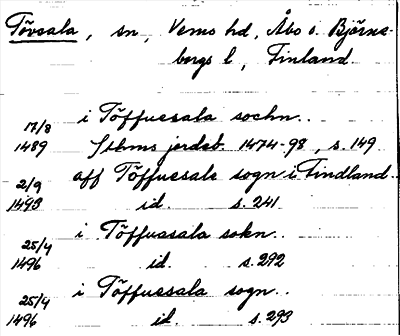 Tövsala, sn, Vemo hd, Åbo o. Björne-
borgs l, Finland.
17/8 i Töffuesala sochn..
1489 Sthms jordeb. 1474-98, s. 149
2/9 aff Töffuesale sogn i Findland..
1493 id. s. 241
25/4 i Töffuasala sokn..
1496 id. s. 292
25/4 i Töffuesala sogn..
1496 id. s. 293